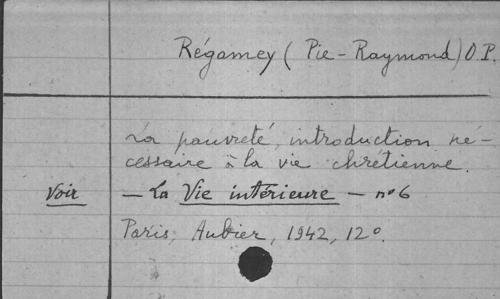 Régamey (Pie-Raymond) O.P.
La pauvreté, introduction né-
cessaire à la vie chrétienne.
Voir — La Vie intérieure — n° 6
Paris, Aubier, 1942, 12°.